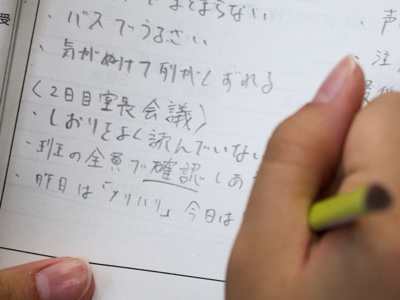 まとまらない
・バスでうるさい
・気がぬけて列がくずれる
〈2日目室長会議〉
・しおりをよく読んでいない
・班の全員で確認しあ
・昨日は「メリハリ」今日は
受
・声
・注